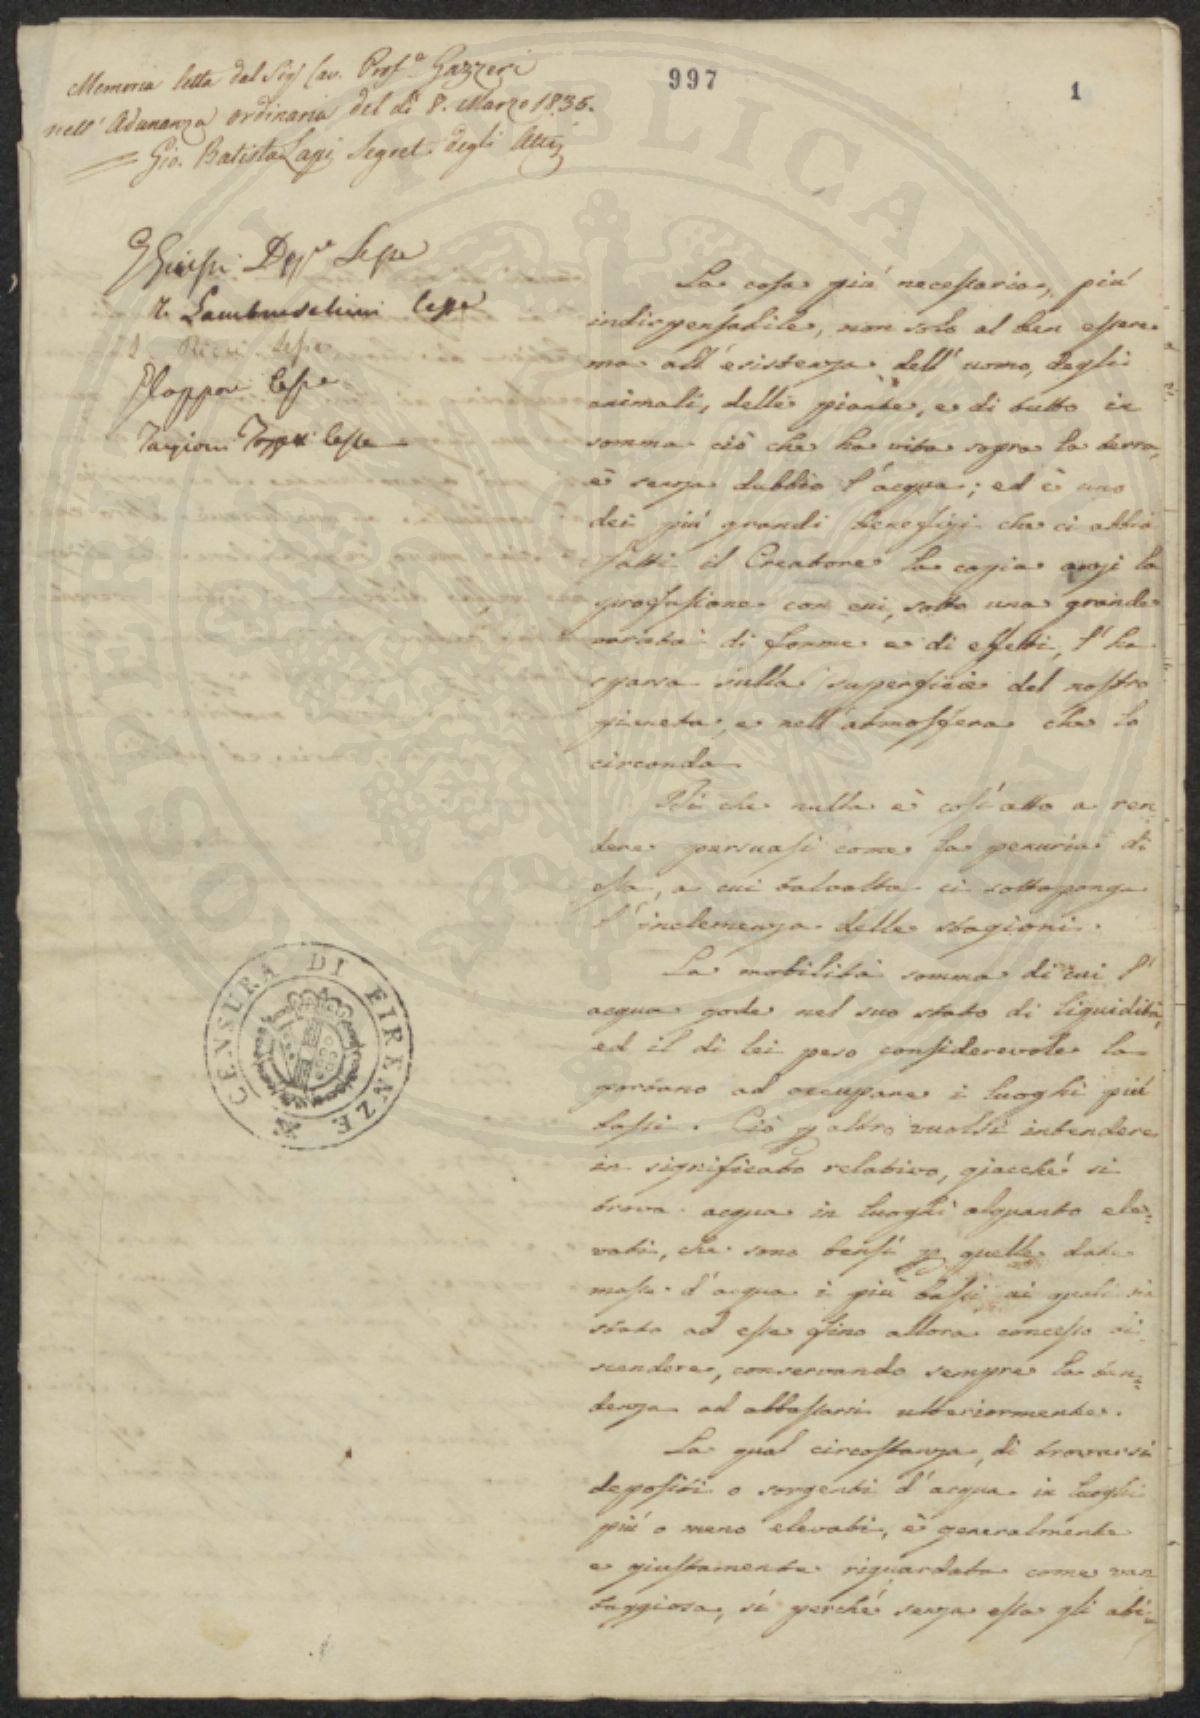 997
1
Memoria letta dal Sig. Cav. Prof.e Gazzeri
nell' Adunanza ordinaria del dì 8. Marzo 1835.
Gio. Batista Lapi Segret. degli Atti
Lesse
R. Lambruschini lesse
Ricci lesse
lesse
Targioni Tozzetti lesse
La cosa più necessaria, più
indispensabile, non solo al ben essere
ma all'esistenza dell'uomo, degli
animali, delle piante, e di tutto in
somma ciò che ha vita sopra la terra,
è senza dubbio l'acqua; ed è uno
dei più grandi benefizi che ci abbia
fatti il Creatore la copia anzi la
profusione con cui, sotto una grande
varietà di forme e di effetti, l'ha
sparsa sulla superficie del nostro
pianeta, e nell'atmosfera che lo
circonda.
Di che nulla è così atto a ren
dere persuasi come la penuria di
essa, a cui talvolta ci sottopong
l'inclemenza delle stagioni.
La mobilità somma di cui l'
acqua gode nel suo stato di liquidità,
ed il di lei peso considerevole la
portano ad occupare i luoghi più
bassi. Ciò p altro vuolsi intendere
in significato relativo, giacchè si
trova acqua in luoghi alquanto ele=
vati, che sono bensì p quelle date
masse d'acqua i più bassi ai quali sia
stato ad esse fino allora concesso di
scendere, conservando sempre la ten=
denza ad abbassarsi ulteriormente.
La qual circostanza, di trovarsi
depositi o sorgenti d'acqua in luoghi
più o meno elevati, è generalmente
e giustamente riguardata come van
taggiosa, sì perchè senza essa gli abi=
CENSURA DI FIRENZE